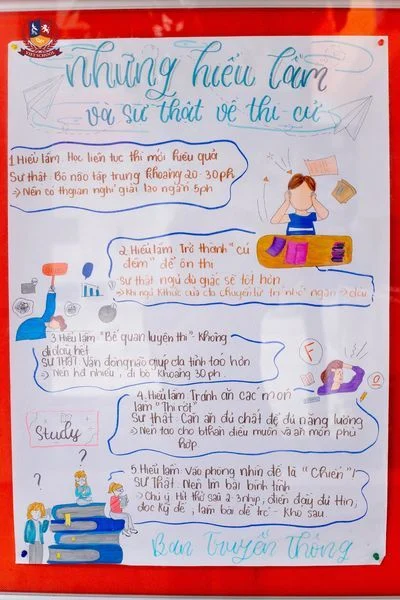 VIETSCHOOL
Những hiểu lầm
và sự thật về thi cử
1. Hiểu lầm: Học liên tục thì mới hiệu quả
Sự thật: Bộ não tập trung khoảng 20-30ph
→ Nên có thgian nghỉ giải lao ngắn 5ph
2. Hiểu lầm: Trở thành "cú
đêm" để ôn thi
Sự thật ngủ đủ giấc sẽ tốt hơn
→ Khi ngủ K.thức của cta chuyển từ trí nhớ ngắn → dài
3. Hiểu lầm: "Bế quan luyện thi" - Không
đi đâu hết
Sự THẬT: Vận động não giúp cta tỉnh táo hơn
→ Nên hđ nhiều, đi bộ khoảng 30 ph.
4. Hiểu lầm Tránh ăn các món
làm "Thi rớt"
Sự thật: Cần ăn đủ chất để đủ năng lượng
→ Nên tạo cho bthân điều muốn và ăn món phù
hợp.
Study
5. Hiểu lầm: Vào phòng nhìn đề là "Chiến"!
Sự THẬT: Nên làm bài bình tĩnh
→ Chú ý: Hít thở sâu 2-3 nhịp, điền đầy đủ ttin,
đọc kỹ đề, làm bài dễ trc - khó sau.
Ban Truyền Thông